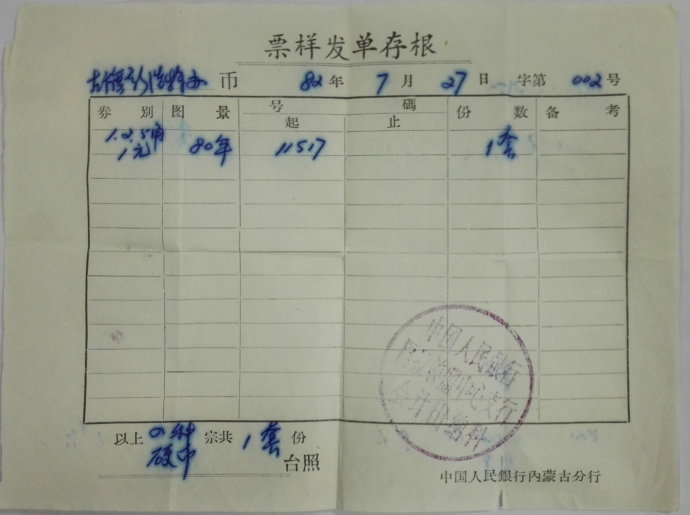 票样发单存根
币 82年 7月 27日 字第 002号
券别 图景 号碼 份数 备考
起 止
1.2.5角
1元 80年 11517 1套
中国人民银行
会计出纳科
以上 四种 宗共 1套 份
硬币
台照
中国人民銀行內蒙古分行